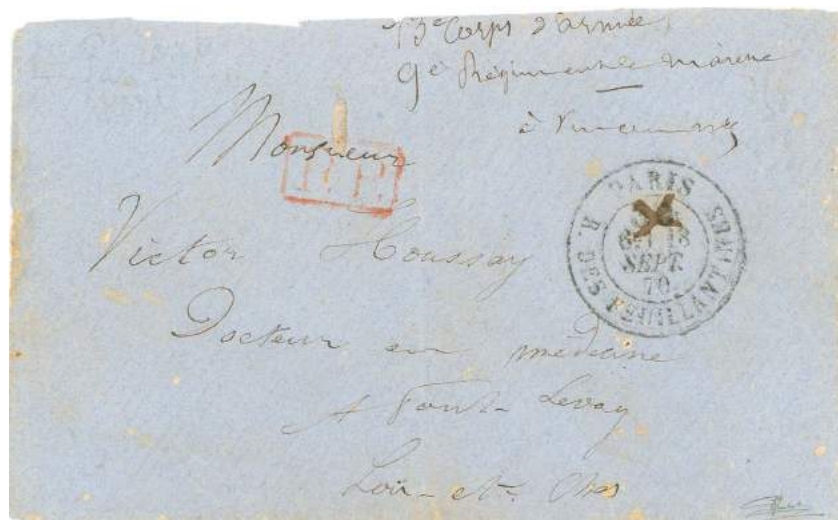 13e Corps d'armée
9e Régiment de marche
à Vincennes
Monsieur
P.P.
PARIS
SEPT
70
R. DES FEUILLANTINES
Victor Houssay
Docteur en médecine
A Pont-Levoy
Loir-et-Cher